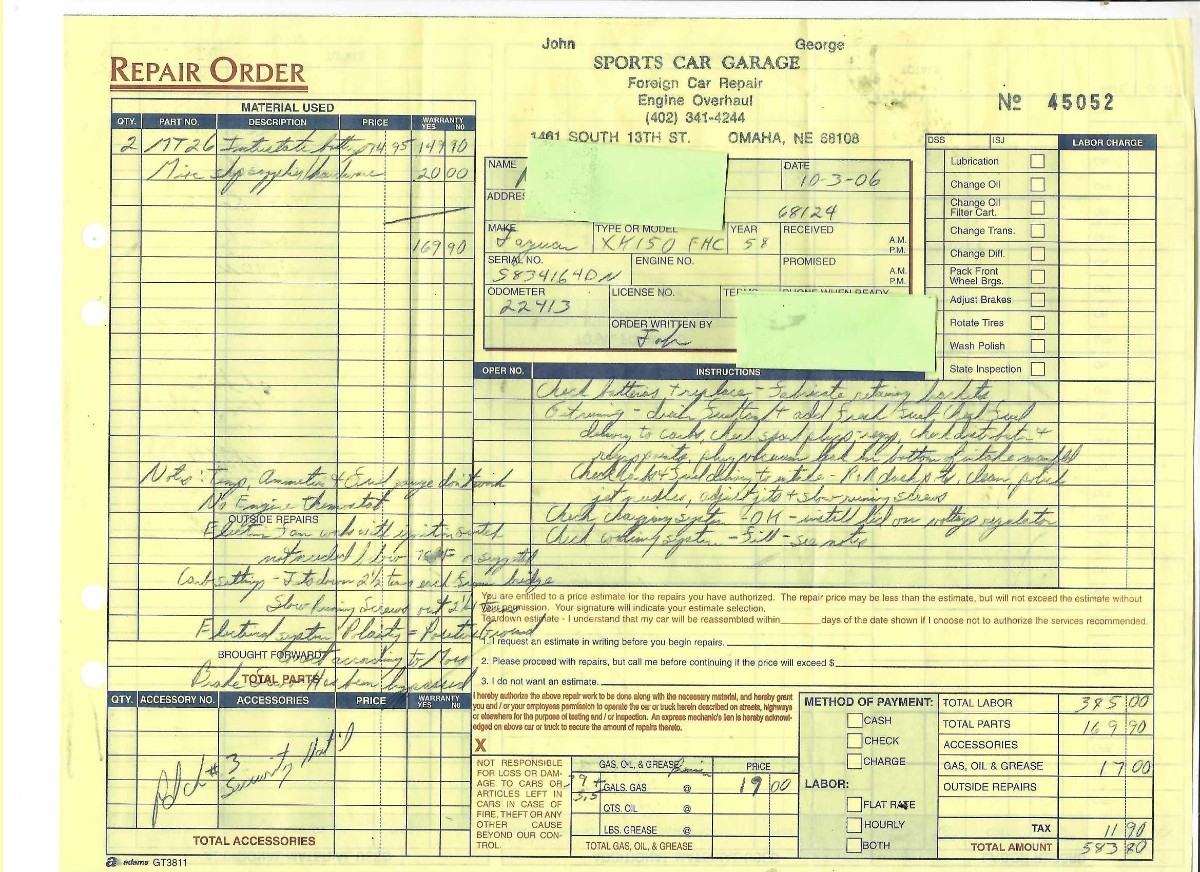 John George
REPAIR ORDER
SPORTS CAR GARAGE
Foreign Car Repair
Engine Overhaul
(402) 341-4244
1461 SOUTH 13TH ST. OMAHA, NE 68108
No 45052
MATERIAL USED
QTY. PART NO. DESCRIPTION PRICE WARRANTY YES NO
2 MT26 Intestate batt 74.95 149 90
Misc shop supplies/hardware 20 00
169 90
NAME
DATE 10-3-06
ADDRE
68124
MAKE Jaguar TYPE OR MODEL XK150 FHC YEAR 58 RECEIVED A.M. P.M.
SERIAL NO. S834164DN ENGINE NO. PROMISED A.M. P.M.
ODOMETER 22413 LICENSE NO.
ORDER WRITTEN BY
DSS ISJ LABOR CHARGE
Lubrication
Change Oil
Change Oil Filter Cart.
Change Trans.
Change Diff.
Pack Front Wheel Brgs.
Adjust Brakes
Rotate Tires
Wash Polish
State Inspection
OPER NO. INSTRUCTIONS
Check batteries + replace - Fabricate retaining brackets
drain fuel tank + add fresh fuel, check fuel
delivery to carbs, check spark plugs, check distributor +
plug vacuum leak in bottom of intake manifold
Check carbs + fuel delivery to intake - R+R dash pots, clean, polish
jet needles, adjust jets + slow running screws
Check charging system - OK - install lid on voltage regulator
Check cooling system - Fill - see notes
Notes: Temp, Ammeter + Fuel gauge don't work
No Engine thermostat
OUTSIDE REPAIRS
Electric Fan works with ignition switch
not needed below
Carb settings - Jets down 2½ turns each from bridge
Slow Running Screws out 2¼ turns
Electrical system Polarity = Positive Ground
BROUGHT FORWARD
according to Moss
TOTAL PARTS
Brake Servo Has been bypassed
You are entitled to a price estimate for the repairs you have authorized. The repair price may be less than the estimate, but will not exceed the estimate without
your permission. Your signature will indicate your estimate selection.
Teardown estimate - I understand that my car will be reassembled within days of the date shown if I choose not to authorize the services recommended.
1. I request an estimate in writing before you begin repairs.
2. Please proceed with repairs, but call me before continuing if the price will exceed $
3. I do not want an estimate.
QTY. ACCESSORY NO. ACCESSORIES PRICE WARRANTY YES NO
Pd ch # 3
Security Nat'l
TOTAL ACCESSORIES
adams GT3811
I hereby authorize the above repair work to be done along with the necessary material, and hereby grant
you and / or your employees permission to operate the car or truck herein described on streets, highways
or elsewhere for the purpose of testing and / or inspection. An express mechanic's lien is hereby acknowl-
edged on above car or truck to secure the amount of repairs thereto.
X
NOT RESPONSIBLE
FOR LOSS OR DAM-
AGE TO CARS OR
ARTICLES LEFT IN
CARS IN CASE OF
FIRE, THEFT OR ANY
OTHER CAUSE
BEYOND OUR CON-
TROL.
GAS, OIL, & GREASE PRICE
GALS. GAS @ 19 00
QTS. OIL @
LBS. GREASE @
TOTAL GAS, OIL, & GREASE
METHOD OF PAYMENT:
CASH
CHECK
CHARGE
LABOR:
FLAT RATE
HOURLY
BOTH
TOTAL LABOR 385 00
TOTAL PARTS 169 90
ACCESSORIES
GAS, OIL & GREASE 17 00
OUTSIDE REPAIRS
TAX 11 90
TOTAL AMOUNT 583 80